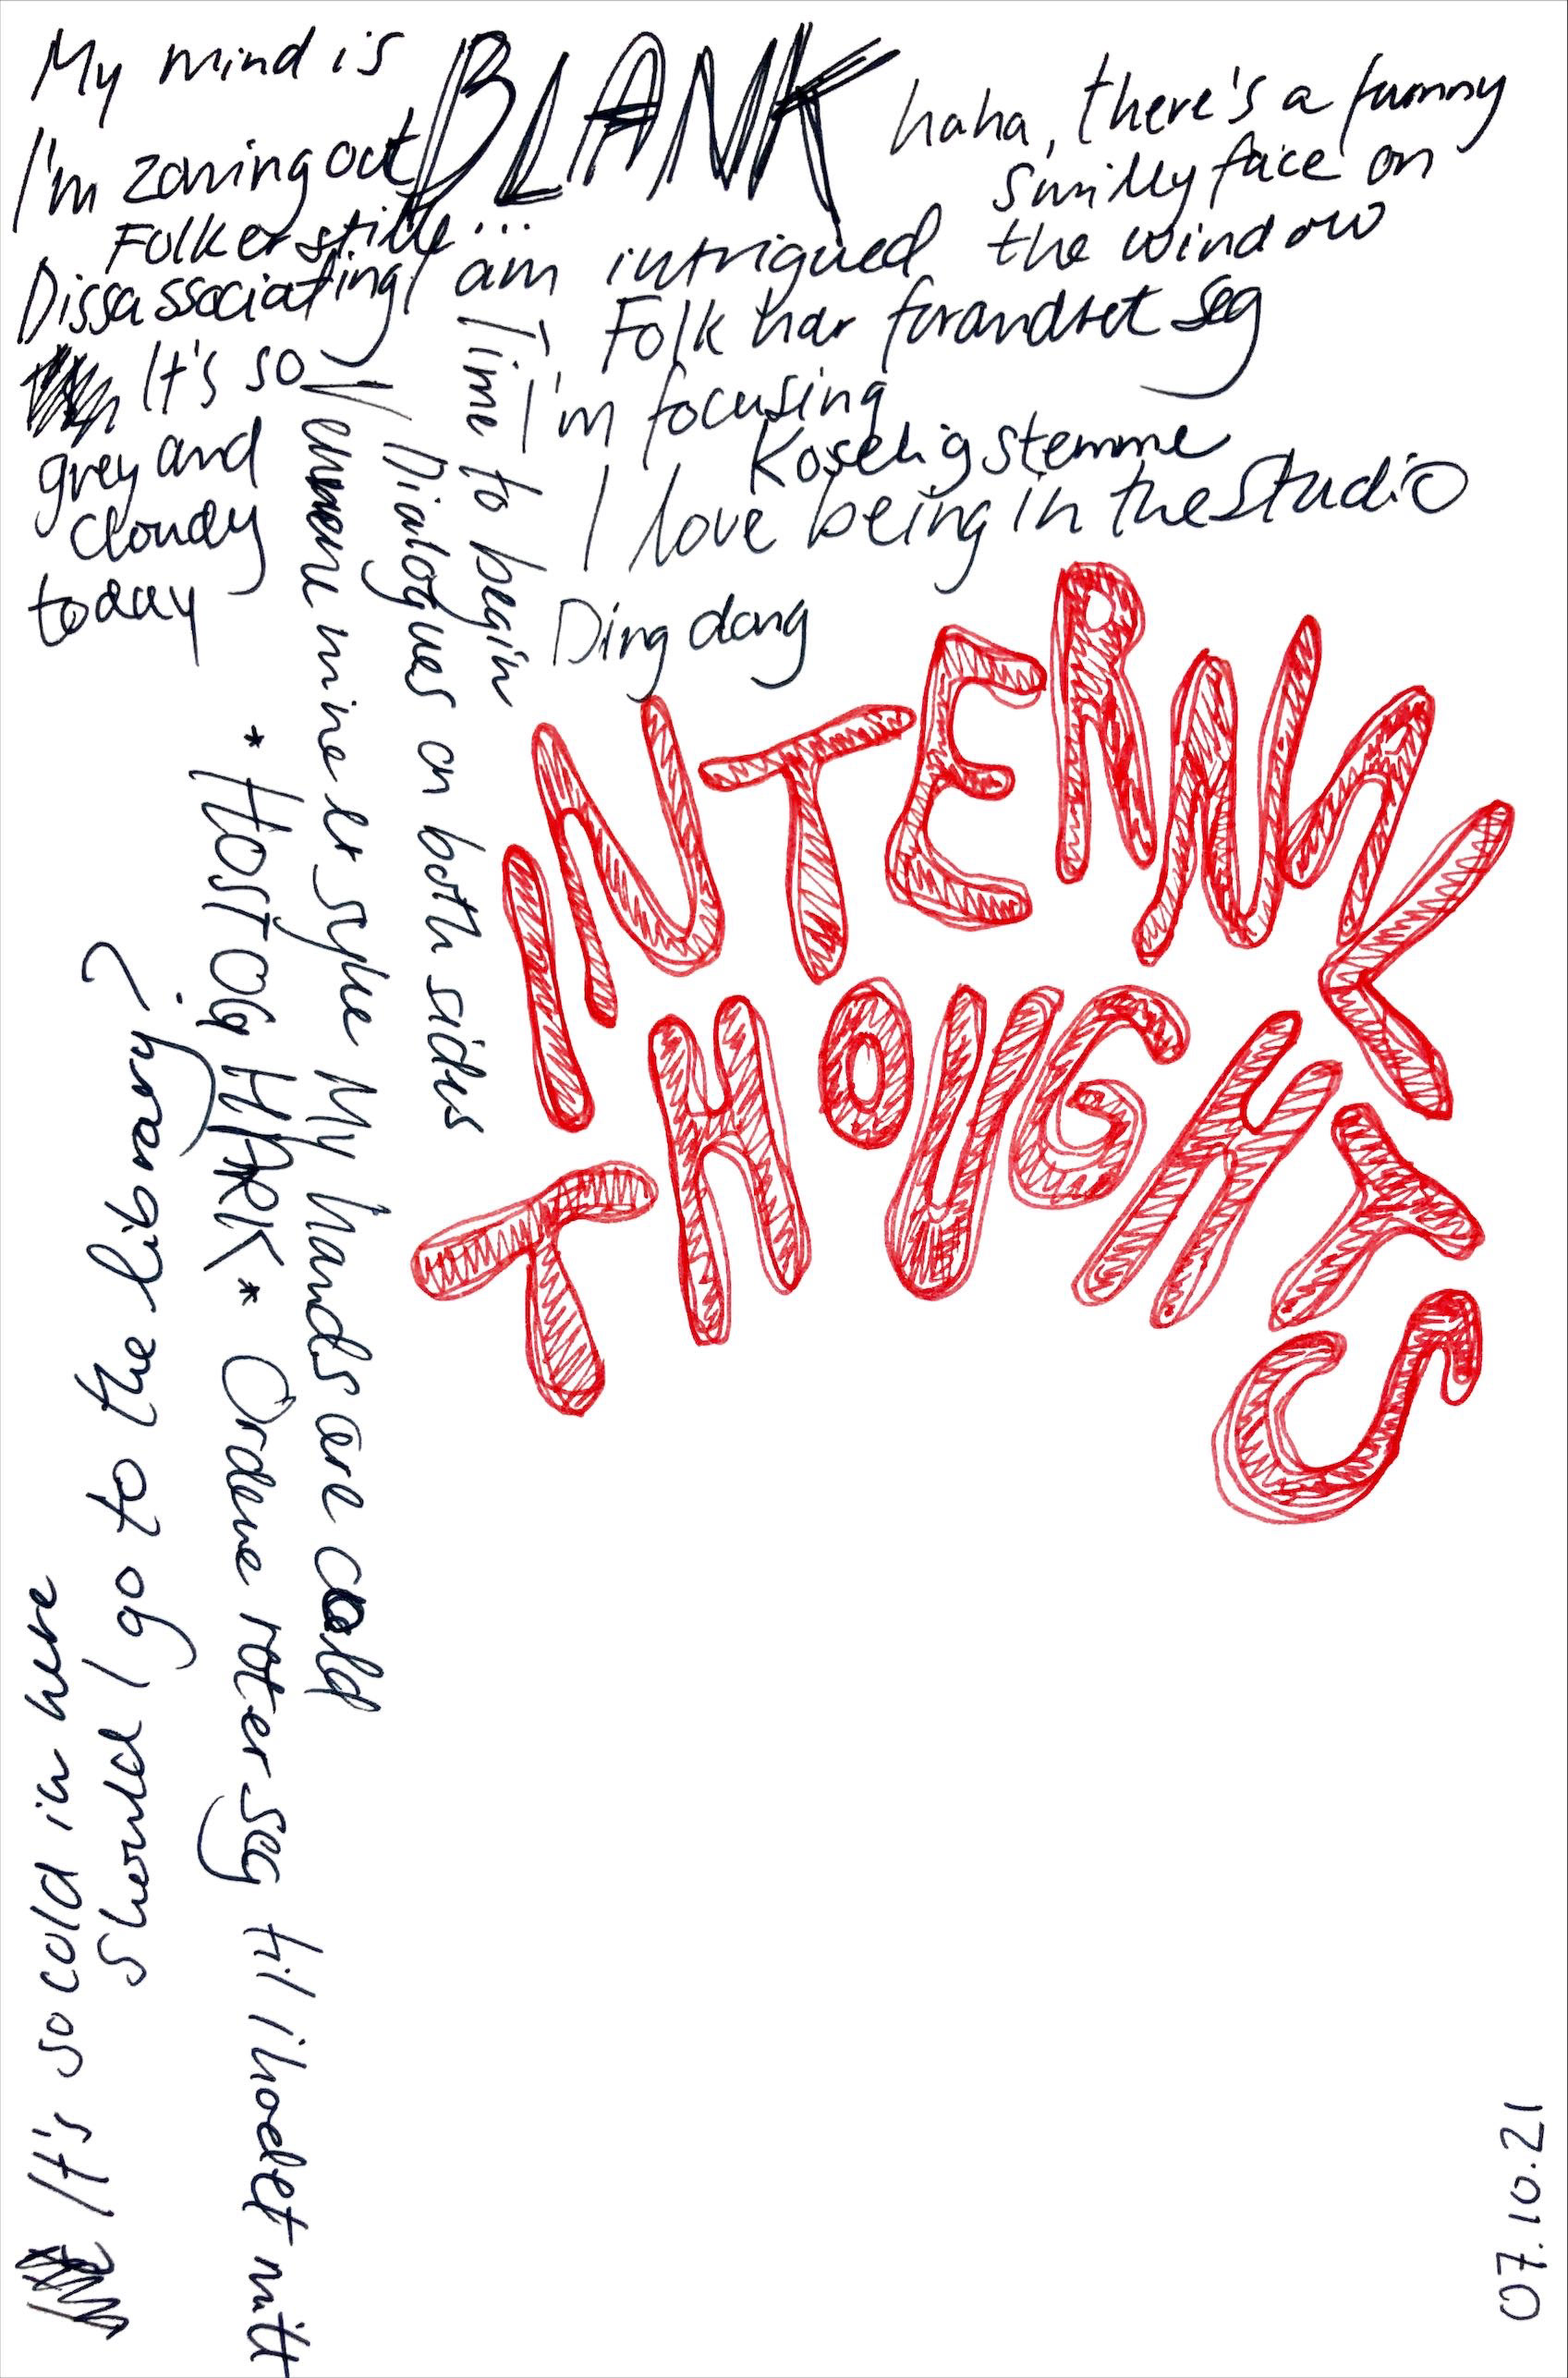 My mind is BLANK
I'm zoning out
Folk er stille...
Dissassociating
It's so
grey and
cloudy
today
haha, there's a funny
smiley face on
the window
I am intrigued
Folk har forandret seg
I'm focusing
Koselig stemme
I love being in the studio
Ding dong
Time to begin
Dialogues on both sides
Vennene mine er syke My hands are cold
* HOST OG HARK * Ordene roter seg til i hodet mitt
It's so cold in here
Should I go to the library?
INTERNAL
THOUGHTS
07.10.21